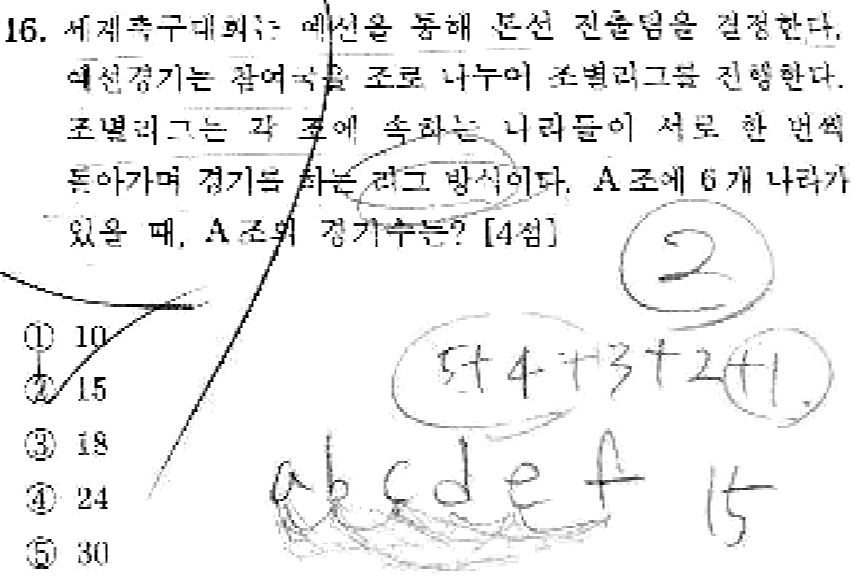 16. 세계축구대회는 예선을 통해 본선 진출팀을 결정한다.
예선경기는 참여국을 조로 나누어 조별리그를 진행한다.
조별리그는 각 조에 속하는 나라들이 서로 한 번씩
돌아가며 경기를 하는 리그 방식이다. A조에 6개 나라가
있을 때, A조의 경기수는? [4점]
2
① 10
5+4+3+2+1.
② 15
③ 18
a b c d e f
④ 24
15
⑤ 30